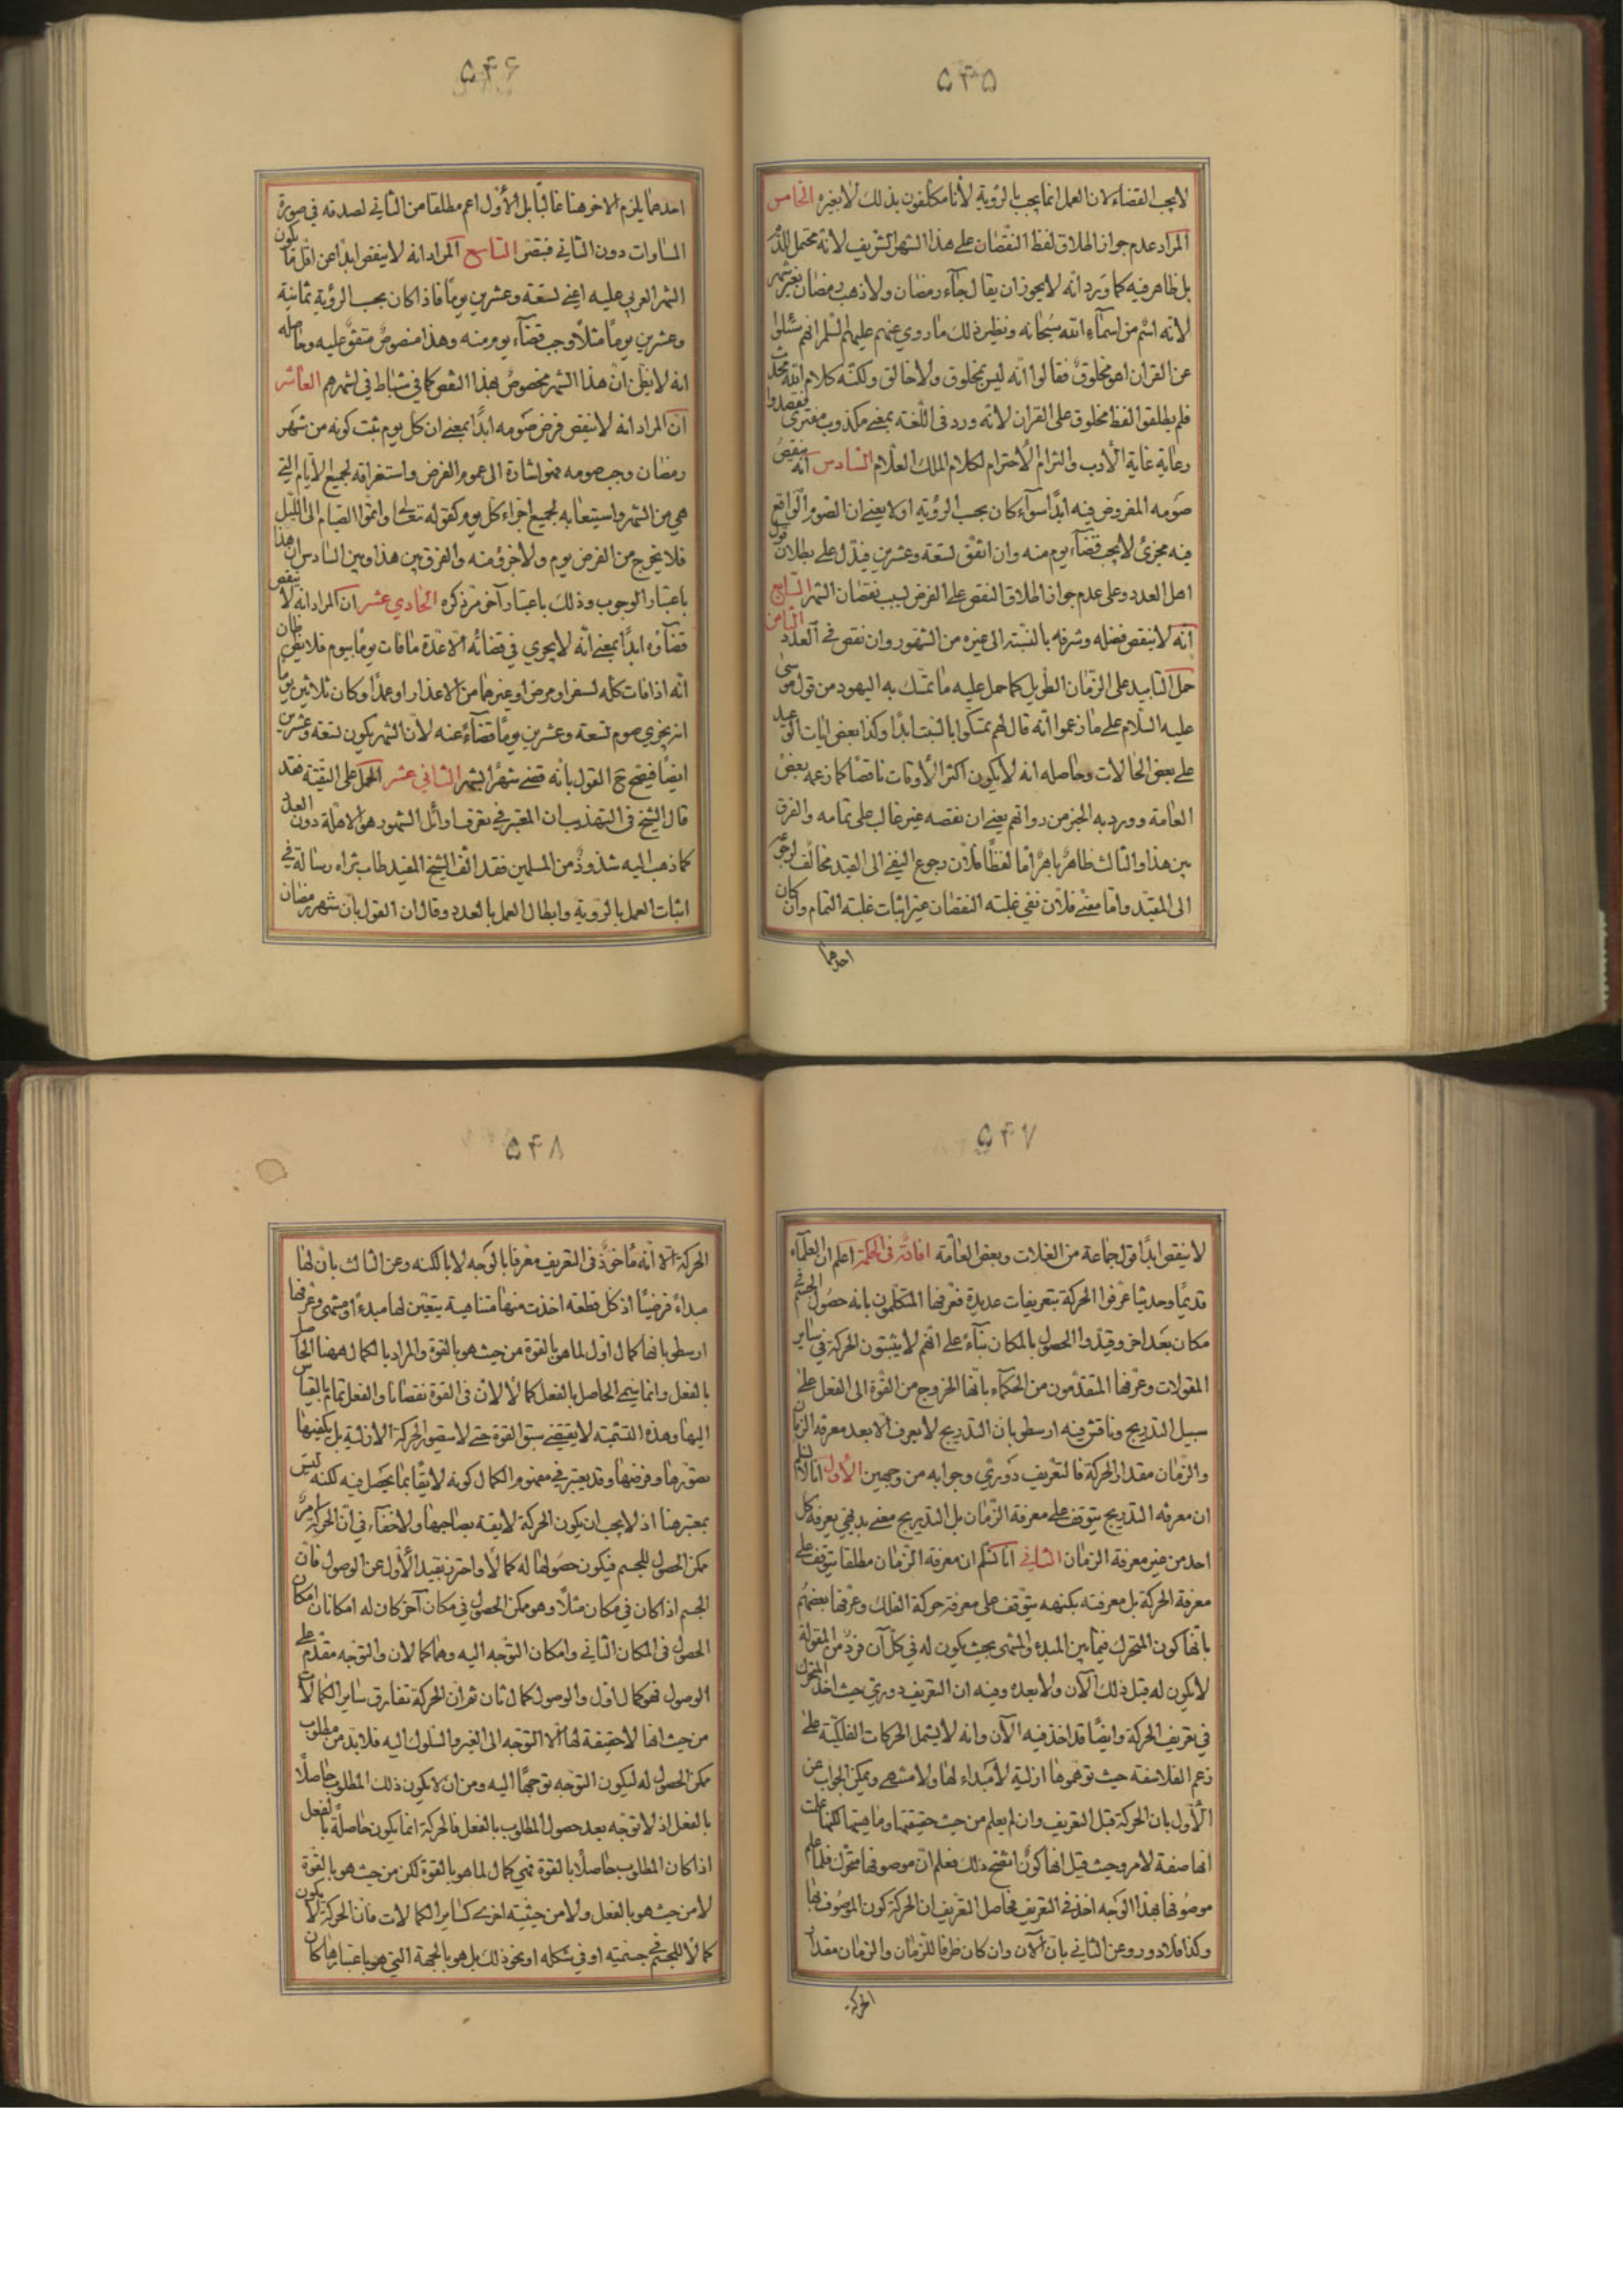 ۵۴۵
لا يجب القضاء لان العمل انما يجب بالرؤية لأنا مكلفون بذلك لا بغيره الخامس
المراد عدم جواز اطلاق لفظ النقصان على هذا الشهر الشريف لأنه محتمل للذم
بل ظاهر فيه كما ورد انه لا يجوز ان يقال جآء رمضان ولا ذهب رمضان بغير شهر
لأنه اسم من اسمآء الله سبحانه ونظير ذلك ما روي عنهم عليهم السلم انهم سئلوا
عن القران اهو مخلوق فقالوا انه ليس بمخلوق ولا خالق ولكنه كلام الله محدث
فلم يطلقوا لفظ مخلوق على القران لأنه ورد فى اللغة بمعنى مكذوب مفترى فقصدوا
رعاية غاية الأدب والتزام الاحترام لكلام الملك العلام السادس انه ينقص
صومه المفروض فيه ابدًا سوآء كان بحسب الرؤية او لا يعنى ان الصوم الواقع
فيه مجزئ لا يجب قضآء يوم منه وان اتفق تسعة وعشرين فيدل على بطلان قول
اهل العدد وعلى عدم جواز اطلاق النقص على الفرض بسبب نقصان الشهر السابع
انه لا ينقص فضله وشرفه بالنسبة الى غيره من الشهور وان نقص في العدد الثامن
حمل التابيد على الزمان الطويل كما حمل عليه ما تمسك به اليهود من قول موسى
عليه السلام على ما زعموا انه قال لهم تمسكوا بالسبت ابدًا وكذا بعض ايات الوعيد
على بعض الحالات وحاصله انه لا يكون اكثر الأوقات ناقصًا كما زعمه بعض
العامة وورد به الخبر من رواتهم يعنى ان نقصه غير غالب على تمامه والفرق
بين هذا والثالث ظاهر باهر أما لفظًا فلان رجوع النفي الى القيد مخالف لرجوعه
الى المقيد واما معنى فلان نفي غلبة النقصان غير اثبات غلبة التمام وان كان
احدهما
۵۴۶
احدهما يلزم الاخر هنا غالبًا بل الأول اعم مطلقا من الثاني لصدقه في صورة
المساوات دون الثاني فتبصر التاسع المراد انه لا ينقص ابدًا عن اقل ما يكون
الشهر العربي عليه اعنى تسعة وعشرين يومًا فاذا كان بحسب الرؤية ثمانية
وعشرين يومًا مثلًا وجب قضآء يوم منه وهذا منصوص متفق عليه وحاصله
انه لا يظن ان هذا الشهر مخصوص بهذا النقص كما في شباط في اشهرهم العاشر
ان المراد انه لا ينقص فرض صومه ابدًا بمعنى ان كل يوم ثبت كونه من شهر
رمضان وجب صومه فهو اشارة الى عموم الفرض واستغراقه لجميع الأيام التي
هي من الشهر واستيعابه لجميع اجزاء كل يوم كقوله تعالى واتموا الصيام الى الليل
فلا يخرج من الفرض يوم ولا جزؤ منه والفرق بين هذا وبين السادس ان هذا
باعتبار الوجوب وذلك باعتبار آخر مر ذكره الحادي عشر ان المراد انه لا ينقص
قضآؤه ابدًا بمعنى انه لا يجزي في قضائه الا عدة ما فات يومًا بيوم فلا يظن ظان
انه اذا فات كله لسفر او مرض او غيرهما من الاعذار او عمدًا وكان ثلاثين يومًا
انه يجزي صوم تسعة وعشرين يومًا قضآءً عنه لأن الشهر يكون تسعة وعشرين
ايضًا فيصح ح القول بانه قضى شهرًا بشهر الثاني عشر الحمل على التقية فقد
قال الشيخ فى التهذيب ان المعتبر في تعرف اوائل الشهور هو الاهلة دون العدد
كما ذهب اليه شذوذ من المسلمين فقد الف الشيخ المفيد طاب ثراه رسالة في
اثبات العمل بالرؤية وابطال العمل بالعدد وقال ان القول بان شهر رمضان
۵۴۷
لا ينقص ابدًا قول جماعة من الغلات وبعض العامة افادة فى الحكمة اعلم ان العلمآء
قديمًا وحديثا عرفوا الحركة بتعريفات عديدة فعرفها المتكلمون بانه حصول الجسم في
مكان بعد اخر وقيدوا الحصول بالمكان بنآءً على انهم لا يثبتون الحركة في ساير
المقولات وعرفها المتقدمون من الحكمآء بانها الخروج من القوة الى الفعل على
سبيل التدريج وناقش فيه ارسطو بان التدريج لا يعرف الا بعد معرفة الزمان
والزمان مقدار الحركة فالتعريف دوري وجوابه من وجهين الأول انا لا نسلم
ان معرفة التدريج يتوقف على معرفة الزمان بل التدريج معنى بديهي يعرفه كل
احد من غير معرفة الزمان الثاني انا لا نسلم ان معرفة الزمان مطلقا يتوقف على
معرفة الحركة بل معرفته بكنهه يتوقف على معرفة حركة الفلك وعرفها بعضهم
بانها كون المتحرك فيما بين المبدء والمنتهى بحيث يكون له في كل آن فرد من المقولة
لا يكون له قبل ذلك الآن ولا بعده وفيه ان التعريف دوري حيث اخذ المتحرك
في تعريف الحركة وايضًا قد اخذ فيه الآن وانه لا يشمل الحركات الفلكية على
زعم الفلاسفة حيث توهموها ازلية لا مبداء لها ولا منتهى ويمكن الجواب عن
الأول بان الحركة قبل التعريف وان لم يعلم من حيث حقيقتها وماهيتها لكنها علمت
انها صفة لامر وحيث قيل انها كون اتضح ذلك فعلم ان موصوفها متحرك فلما علم
موصوفها بهذا الوجه اخذ في التعريف فحاصل التعريف ان الحركة كون الموصوف بها
وكذا فلا دور وعن الثاني بان الآن وان كان طرفا للزمان والزمان مقدار
الحركة
۵۴۸
الحركة الا انه مأخوذ فى التعريف معرفا بالوجه لا بالكنه وعن الثالث بان لها
مبداءً فرضيًا اذ كل قطعة اخذت منها متناهية يتعين لها مبدء او منتهى وعرفها
ارسطو بانها كمال اول لما هو بالقوة من حيث هو بالقوة والمراد بالكمال ههنا الحاصل
بالفعل وانما سمي الحاصل بالفعل كمالًا لان فى القوة نقصانا والفعل تمام بالقياس
اليها وهذه التسمية لا يقتضي سبق القوة حتى لا يتصور الحركة الازلية بل يكفيها
تصورها وفرضها وقد يعتبر في مفهوم الكمال كونه لايقًا بما يحصل فيه لكنه ليس
بمعتبر هنا اذ لا يجب ان يكون الحركة لايقة بصاحبها ولا خفآء في ان الحركة امر
ممكن الحصول للجسم فيكون حصولها له كمالًا واحترز بقيد الأول عن الوصول فان
الجسم اذا كان في مكان مثلًا وهو ممكن الحصول في مكان آخر كان له امكانان امكان
الحصول فى المكان الثاني وامكان التوجه اليه وهما كمالان والتوجه مقدم على
الوصول فهو كمال اول والوصول كمال ثان ثم ان الحركة تفارق ساير الكمالات
من حيث انها لا حقيقة لها الا التوجه الى الغير والسلوك اليه فلا بد من مطلوب
ممكن الحصول له ليكون التوجه توجهًا اليه ومن ان لا يكون ذلك المطلوب حاصلًا
بالفعل اذ لا توجه بعد حصول المطلوب بالفعل فالحركة انما يكون حاصلة بالفعل
اذا كان المطلوب حاصلًا بالقوة فهي كمال لما هو بالقوة لكن من حيث هو بالقوة
لا من حيث هو بالفعل ولا من حيثية اخرى كساير الكمالات فان الحركة لا يكون
كمالًا للجسم في جسميته او في شكله او نحو ذلك بل هو بالجهة التي هو باعتبارها كان